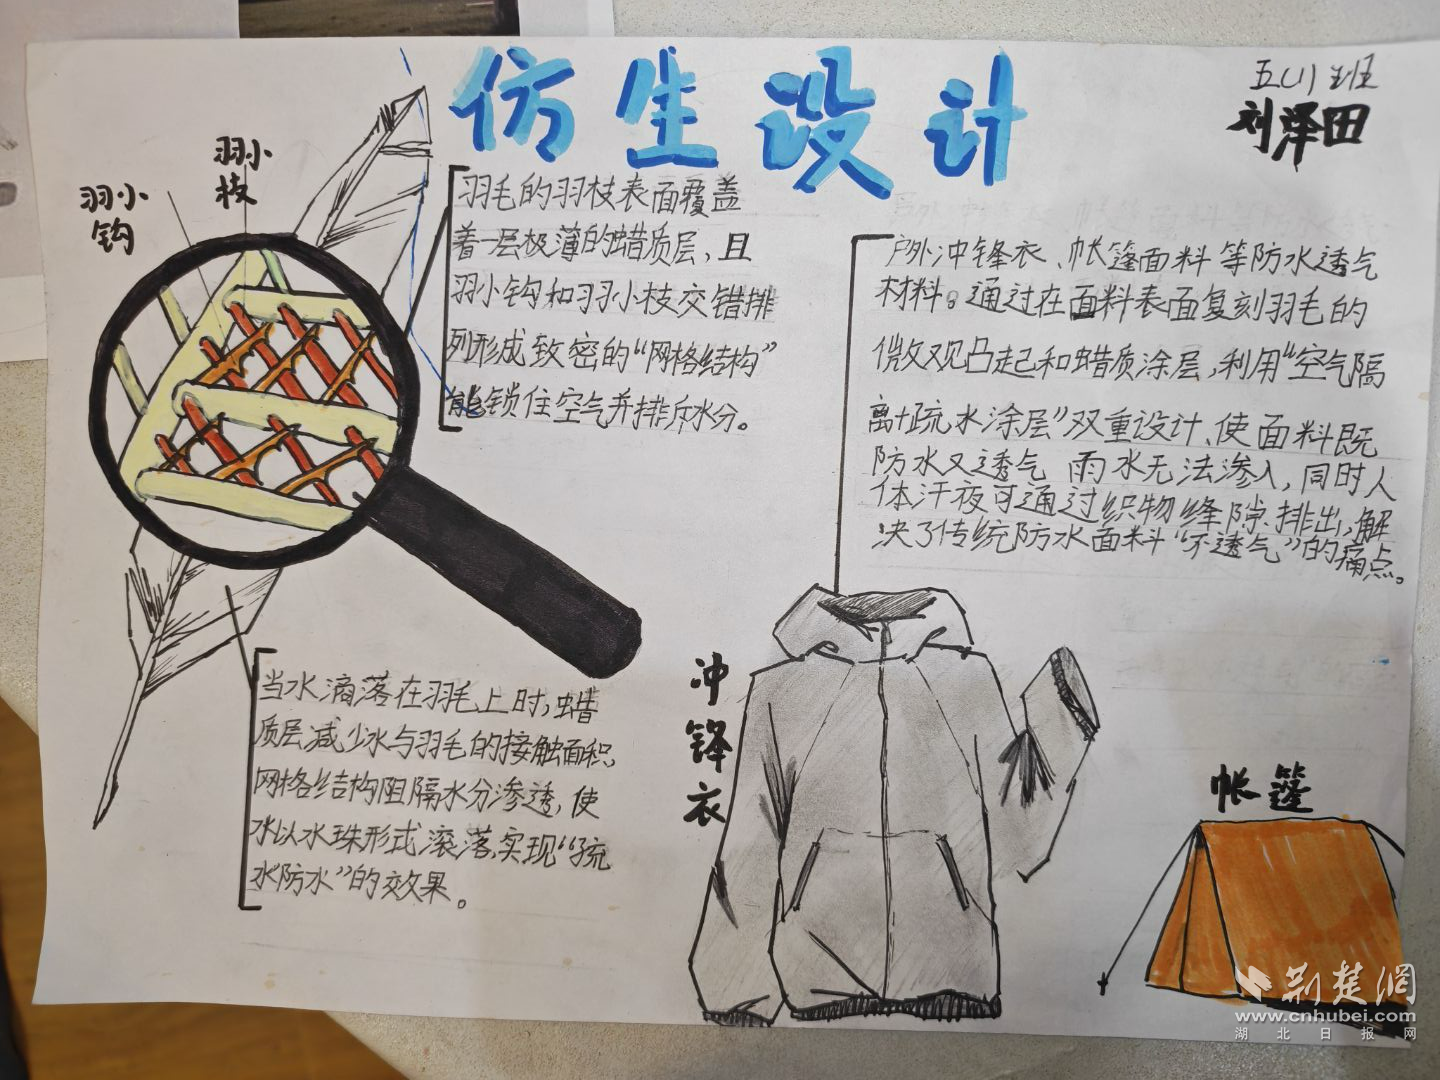 仿生设计
五(1)班
刘泽田
羽小
枝
羽小
钩
羽毛的羽枝表面覆盖
着一层极薄的蜡质层，且
羽小钩和羽小枝交错排
列形成致密的“网格结构”
能锁住空气并排斥水分。
户外冲锋衣、帐篷面料等防水透气
材料。通过在面料表面复刻羽毛的
微观凸起和蜡质涂层，利用“空气隔
离+疏水涂层”双重设计、使面料既
防水又透气 雨水无法渗入，同时人
体汗液可通过织物缝隙排出，解
决了传统防水面料“不透气”的痛点。
当水滴落在羽毛上时，蜡
质层减少水与羽毛的接触面积，
网格结构阻隔水分渗透，使
水以水珠形式滚落，实现“疏
水防水”的效果。
冲
锋
衣
帐篷
荆楚网
www.cnhubei.com
湖北日报网